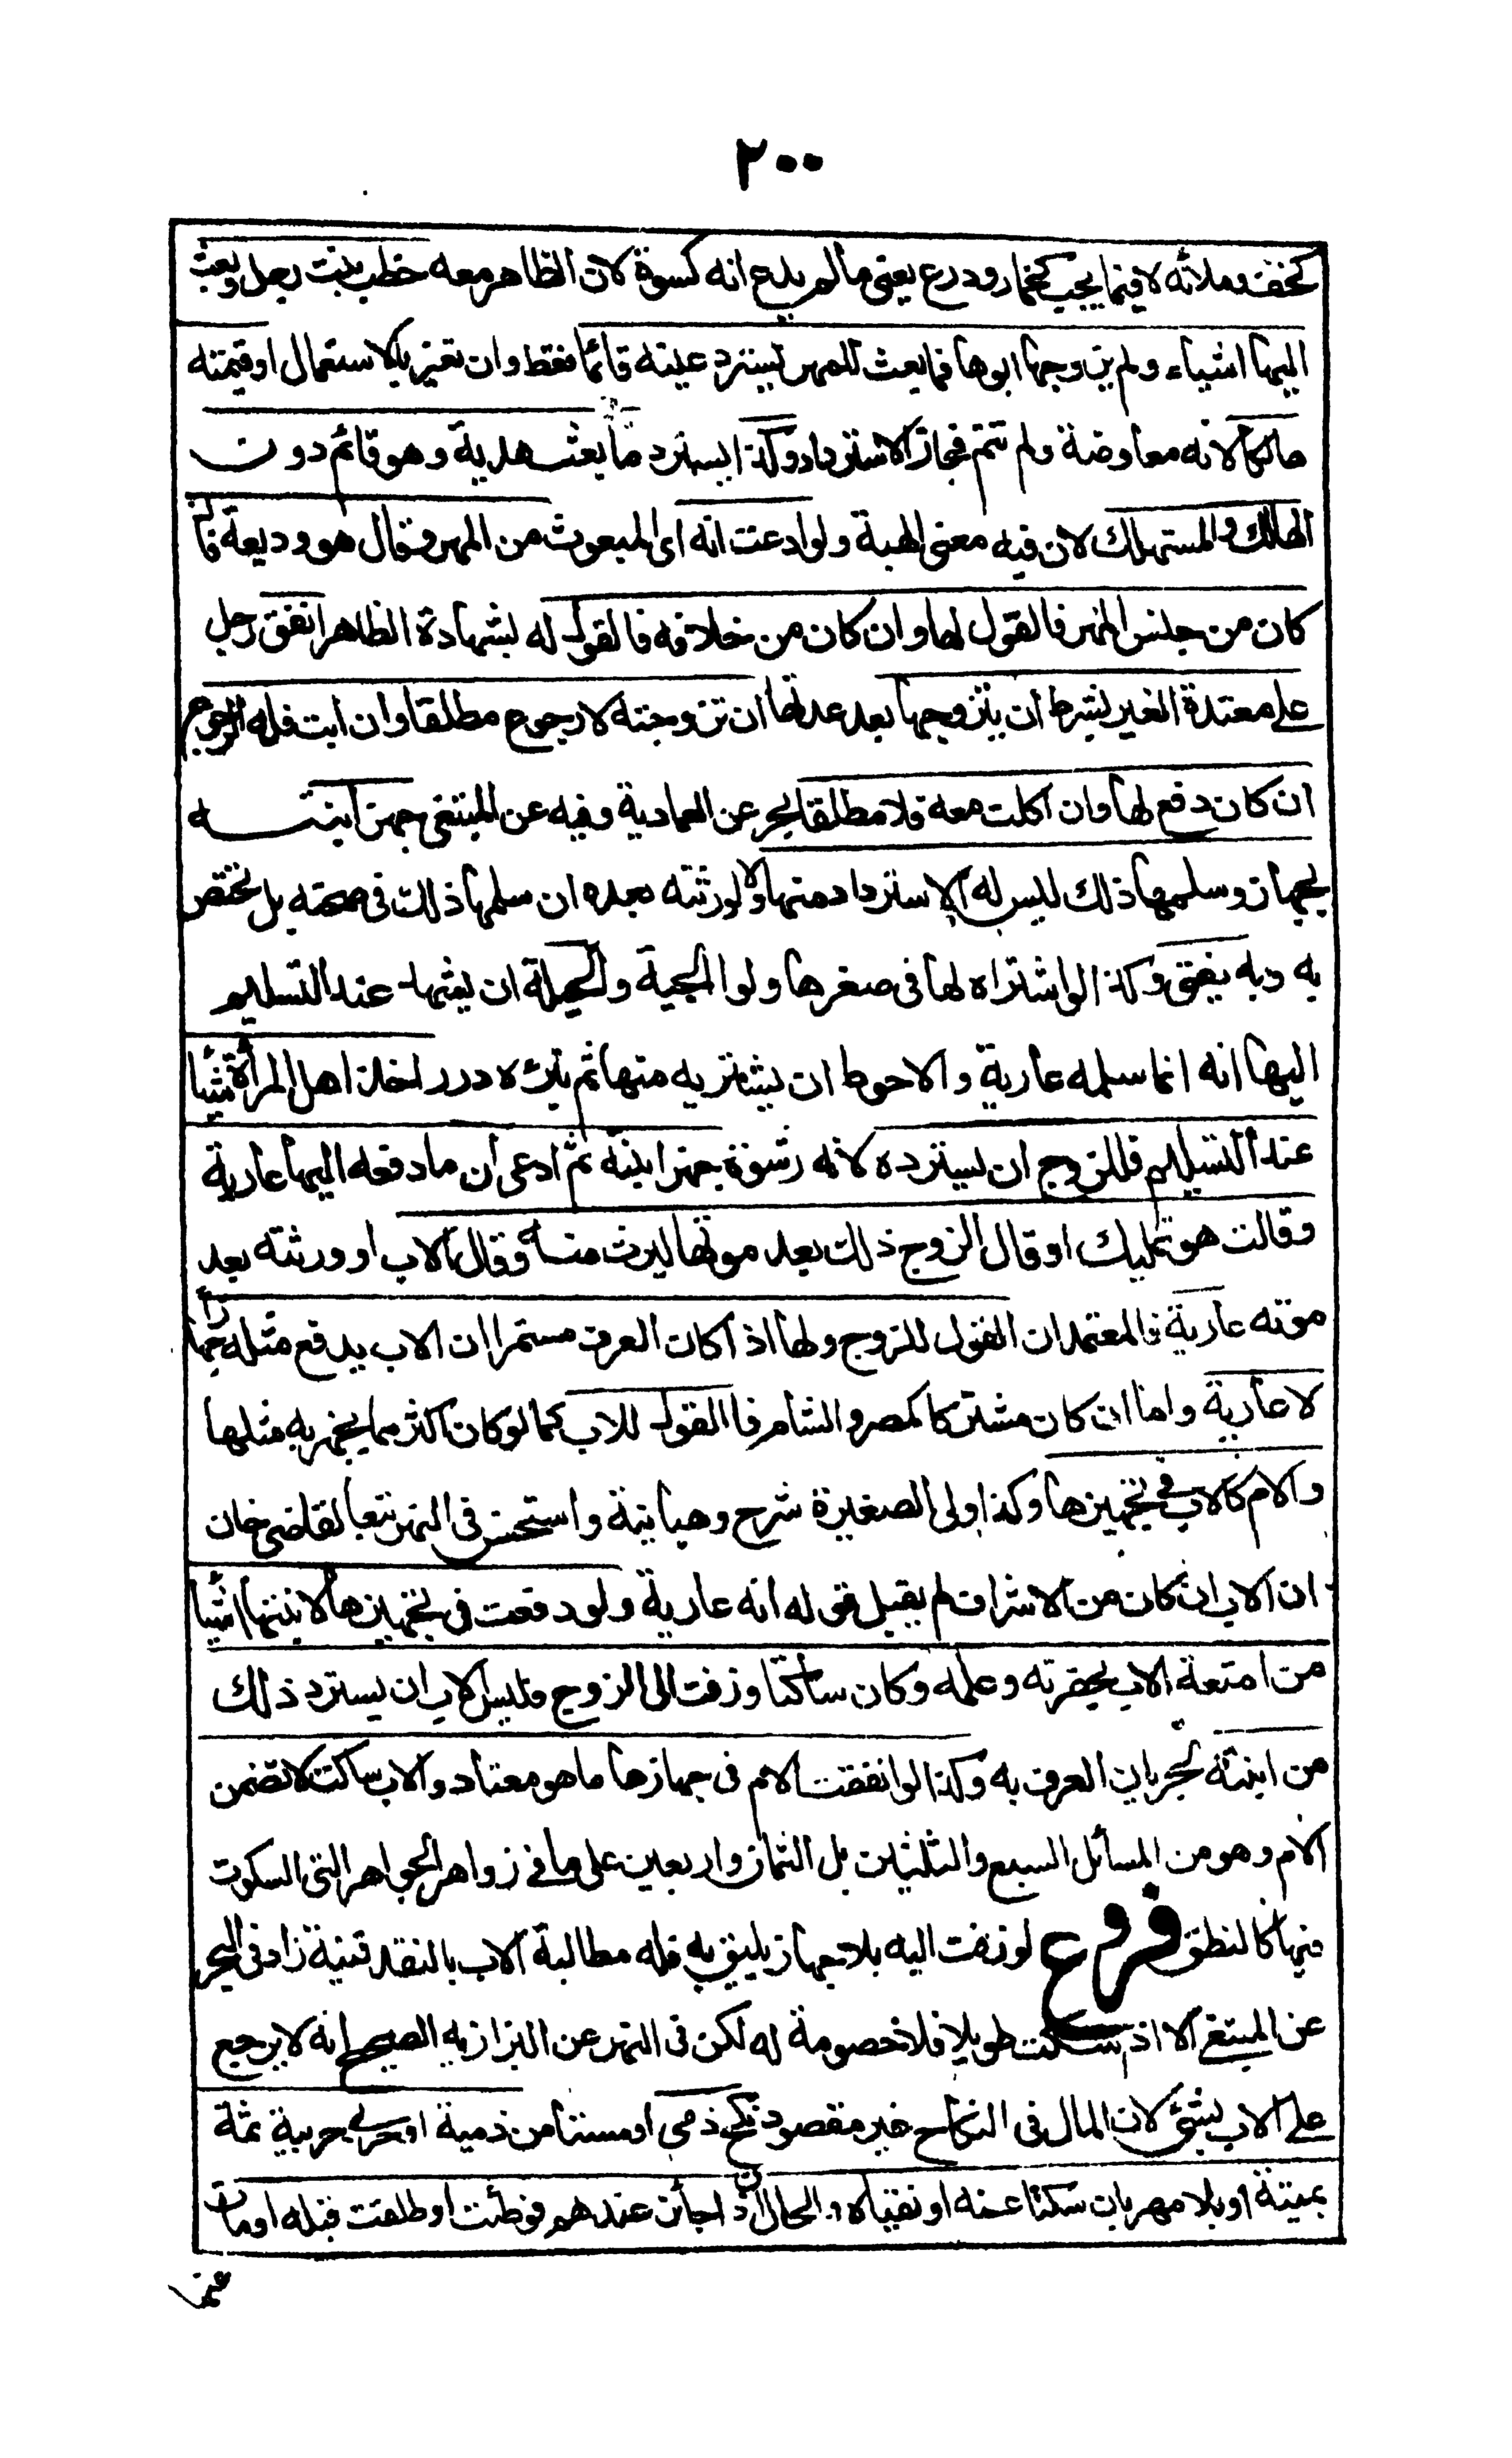 ٢٠٠
كخف وملائه لا فيما يجب كخمار ودرع يعني ما لم يدع انه كسوة لان الظاهر معه خطب بنت رجل وبعث
اليها اشياء ولم يزوجها ابوها فما بعث للمهر يسترد عينه قائما فقط وان تغير بالاستعمال او قيمته
هالكا لانه معاوضة ولم تتم فجاز الاسترداد وكذا يسترد ما بعث هدية وهو قائم دون
الهالك والمستهلك لان فيه معنى الهبة ولو ادعت انه اي المبعوث من المهر وقال هو وديعة فان
كان من جنس المهر فالقول لها وان كان من خلافه فالقول له بشهادة الظاهر انفق رجل
على معتدة الغير بشرط ان يتزوجها بعد عدتها ان تزوجته لا رجوع مطلقا وان ابت فله الرجوع
ان كان دفع لها وان اكلت معه فلا مطلقا بحر عن العمادية وفيه عن المبتغى جهز ابنته
بجهاز وسلمها ذلك ليس له الاسترداد منها ولا لورثته بعده ان سلمها ذلك في صحته بل تختص
به وبه يفتى وكذا لو اشتراه لها في صغرها ولوالجية والحيلة ان يشهد عند التسليم
اليها انه انما سلمه عارية والاحوط ان يشتريه منها ثم تبرئه درر اخذ اهل المرأة شيئا
عند التسليم فللزوج ان يسترده لانه رشوة جهز ابنته ثم ادعى ان ما دفعه اليها عارية
وقالت هو تمليك او قال الزوج ذلك بعد موتها ليرث منه وقال الاب او ورثته بعد
موته عارية فالمعتمد ان القول للزوج ولها اذا كان العرف مستمرا ان الاب يدفع مثله جهازا
لا عارية واما ان كان مشتركا كمصر والشام فالقول للاب كما لو كان اكثر مما يجهز به مثلها
والام كالاب في تجهيزها وكذا ولي الصغيرة شرح وهبانية واستحسن في النهر تبعا لقاضي خان
ان الاب ان كان من الاشراف لم يقبل قوله انه عارية ولو دفعت في تجهيزها لابنتها اشيا
من امتعة الاب بحضرته وعلمه وكان ساكتا وزفت الى الزوج فليس للاب ان يسترد ذلك
من ابنته لجريان العرف به وكذا لو انفقت الام في جهازها ما هو معتاد والاب ساكت لا تضمن
الام وهو من المسائل السبع والثلثين بل الثمان واربعين على ما في زواهر الجواهر التي السكوت
فيها كالنطق فروع لو زفت اليه بلا جهاز يليق به فله مطالبة الاب بالنقد قنية زاد في البحر
عن المبتغى الا اذا سكت طويلا فلا خصومة له لكن في النهر عن البزازيه الصحيح انه لا يرجع
على الاب بشئ لان المال في النكاح غير مقصود نكح ذمي او مستأمن ذمية او حربي حربية ثمة
بميتة او بلا مهر بان سكتا عنه او نفياه والحال ان ذا جائز عندهم فوطئت او طلقت قبله او مات